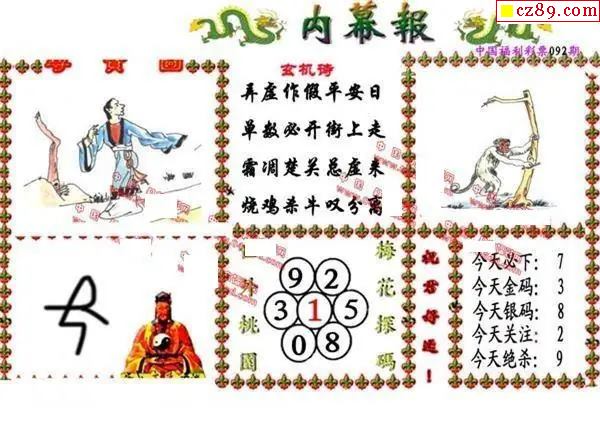 cz89.com
内幕報
中国福利彩票092期
玄机诗
弄虚作假平安日
单数必开街上走
霜凋楚关总虚来
烧鸡杀牛叹分离
外桃園
梅花探码
9 2
3 1 5
0 8
祝君好运!
今天必下: 7
今天金码: 3
今天银码: 8
今天关注: 2
今天绝杀: 9